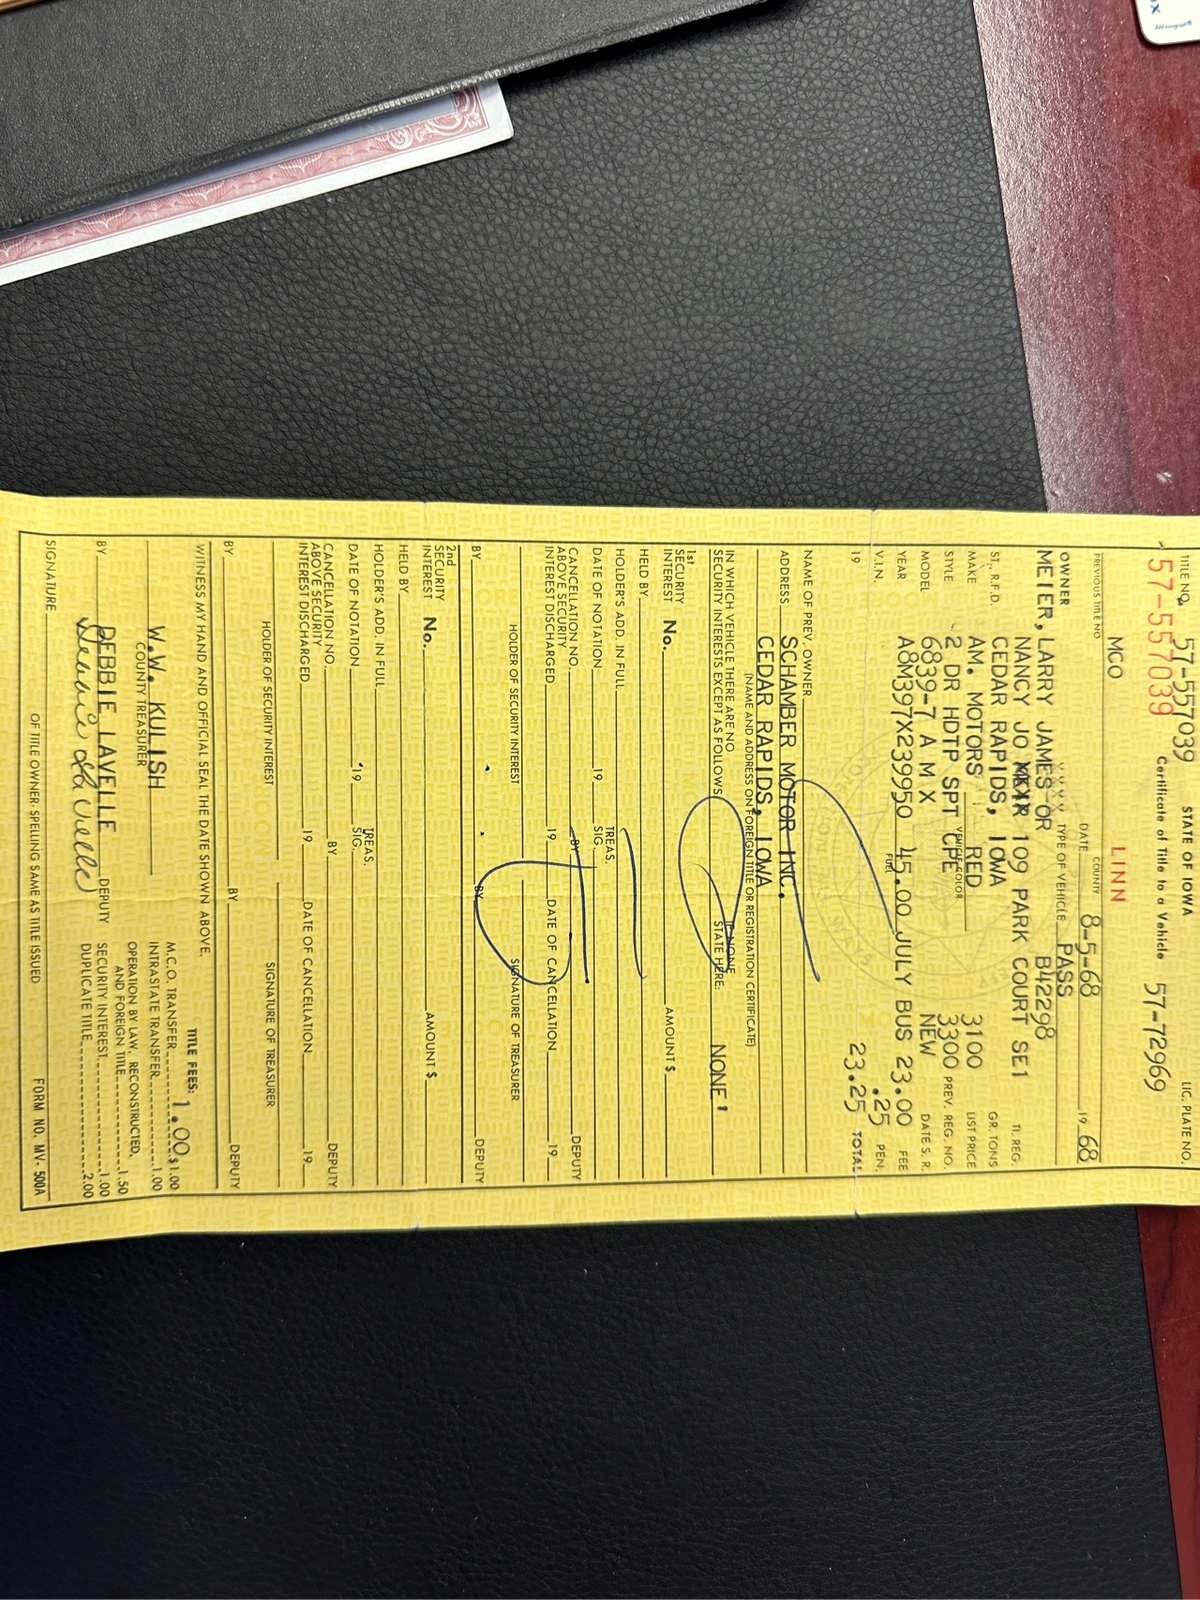 TITLE NO. STATE OF IOWA LIC. PLATE NO.
57-557039 Certificate of Title to a Vehicle 57-72969
57-557039
MCO LINN
PREVIOUS TITLE NO. COUNTY
DATE 8-5-68 19 68
OWNER TYPE OF VEHICLE PASS
MEIER, LARRY JAMES OR B42298 TI. REG.
NANCY JO 109 PARK COURT SE1
ST., R.F.D. CEDAR RAPIDS, IOWA GR. TONS
MAKE AM. MOTORS RED 3100 LIST PRICE
VEHICLE COLOR
STYLE 2 DR HDTP SPT CPE 3300 PREV. REG. NO.
MODEL 6839-7 A M X NEW DATE S. R.
YEAR A8M397X239950 45.00 JULY BUS 23.00 FEE
V.I.N. FUEL .25 PEN.
19 23.25 TOTAL
NAME OF PREV. OWNER
ADDRESS SCHAMBER MOTOR INC.
CEDAR RAPIDS, IOWA
(NAME AND ADDRESS ON FOREIGN TITLE OR REGISTRATION CERTIFICATE)
IN WHICH VEHICLE THERE ARE NO IF NONE
SECURITY INTERESTS EXCEPT AS FOLLOWS STATE HERE: NONE'
1st
SECURITY
INTEREST No. AMOUNT $
HELD BY
HOLDER'S ADD. IN FULL
DATE OF NOTATION 19 TREAS. SIG.
CANCELLATION NO. BY DEPUTY
ABOVE SECURITY
INTEREST DISCHARGED 19 DATE OF CANCELLATION 19
HOLDER OF SECURITY INTEREST SIGNATURE OF TREASURER
BY BY DEPUTY
2nd
SECURITY
INTEREST No. AMOUNT $
HELD BY
HOLDER'S ADD. IN FULL
DATE OF NOTATION 19 TREAS. SIG.
CANCELLATION NO. BY DEPUTY
ABOVE SECURITY
INTEREST DISCHARGED 19 DATE OF CANCELLATION 19
HOLDER OF SECURITY INTEREST SIGNATURE OF TREASURER
BY BY DEPUTY
WITNESS MY HAND AND OFFICIAL SEAL THE DATE SHOWN ABOVE.
TITLE FEES: 1.00
W.W. KULISH M.C.O. TRANSFER $1.00
COUNTY TREASURER INTRASTATE TRANSFER 1.00
OPERATION BY LAW, RECONSTRUCTED,
AND FOREIGN TITLE 1.50
BY DEBBIE LAVELLE DEPUTY SECURITY INTEREST 1.00
DUPLICATE TITLE 2.00
SIGNATURE OF TITLE OWNER. SPELLING SAME AS TITLE ISSUED FORM NO. MV-500A